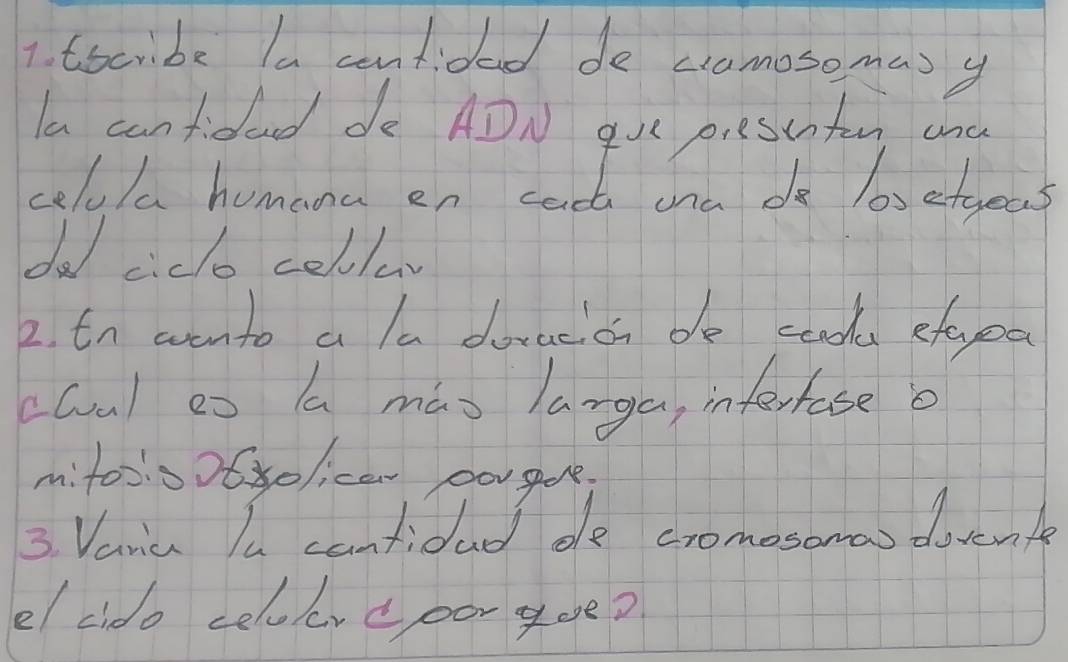 1. Escribe la cantidad de cramosomas y
la cantidad de ADN que presenten una
celula humana en cada una de los etapas
del ciclo celular
2. En cuanto a la duración de cada etapa
¿Cual es la más larga, interfase o
mitosis? Explicar porque.
3. Varia la cantidad de cromosomas durante
el ciclo celular ¿por que?